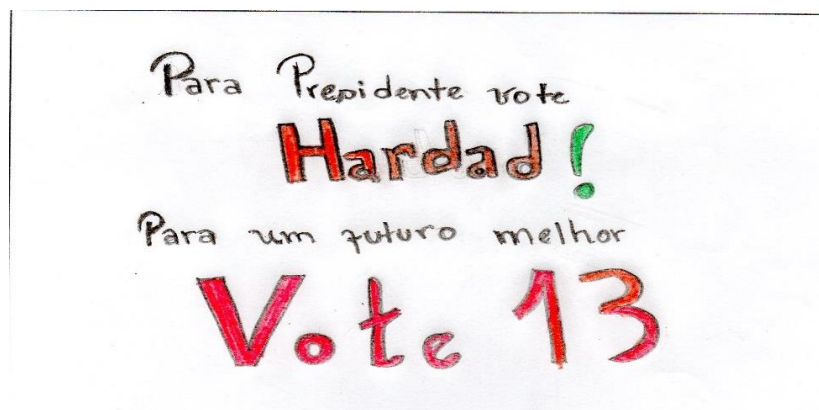 Para Presidente vote
Hardad!
Para um futuro melhor
Vote 13